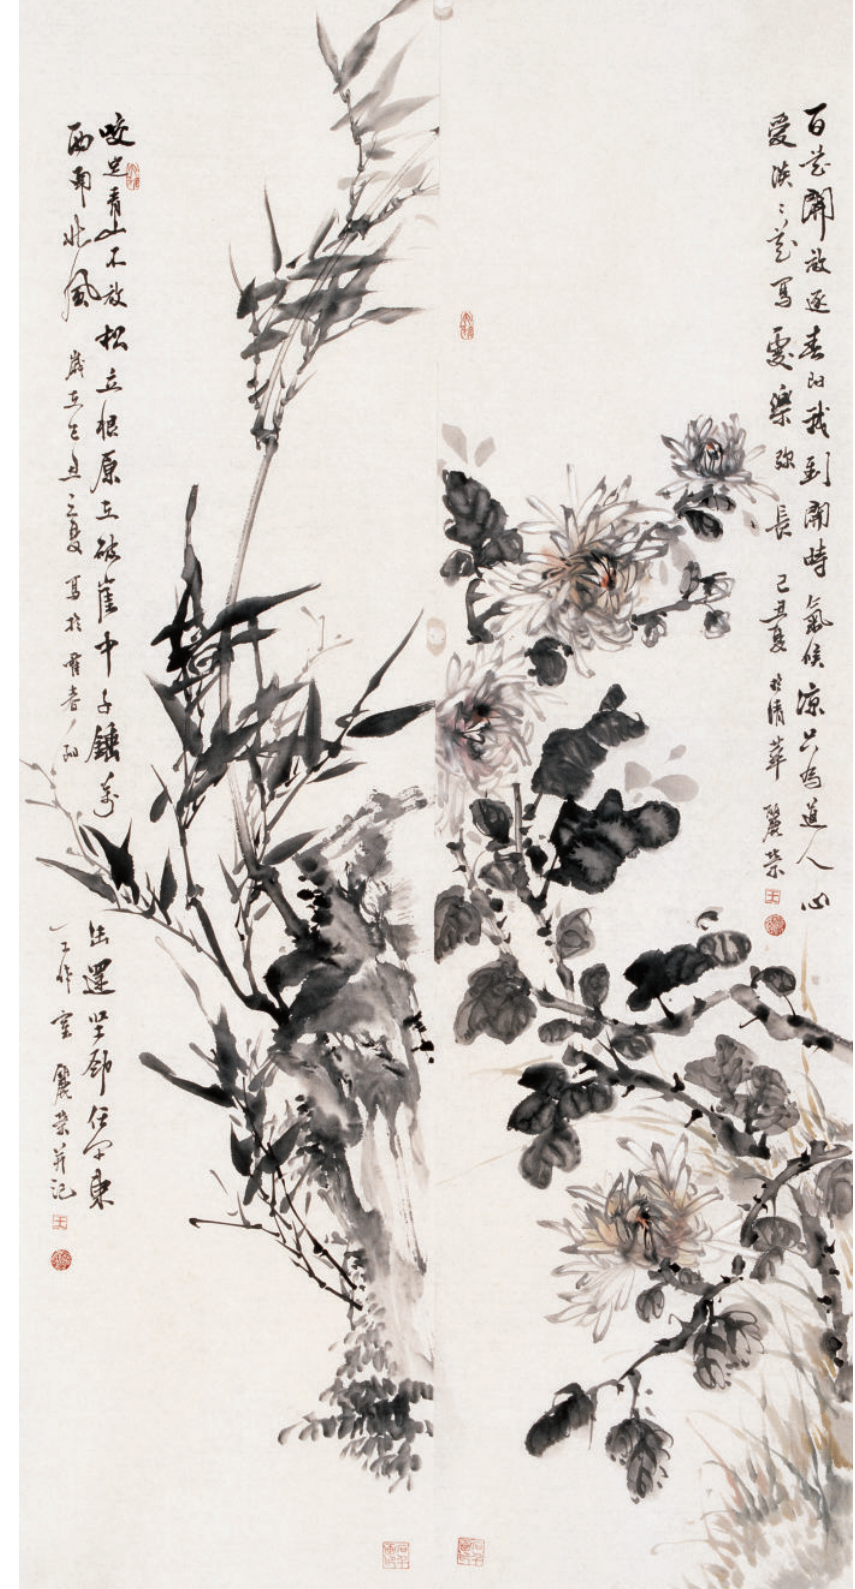 百花開放逐春阳我到開時氣候凉只為道人心
愛淡〻花写處樂弥長 己丑夏於清華 麗榮
王
咬定青山不放松立根原在破崖中千錘萬击還坚劲任尔東
西南北風 歲在己丑之夏 写於 工作室 麗榮并记
王